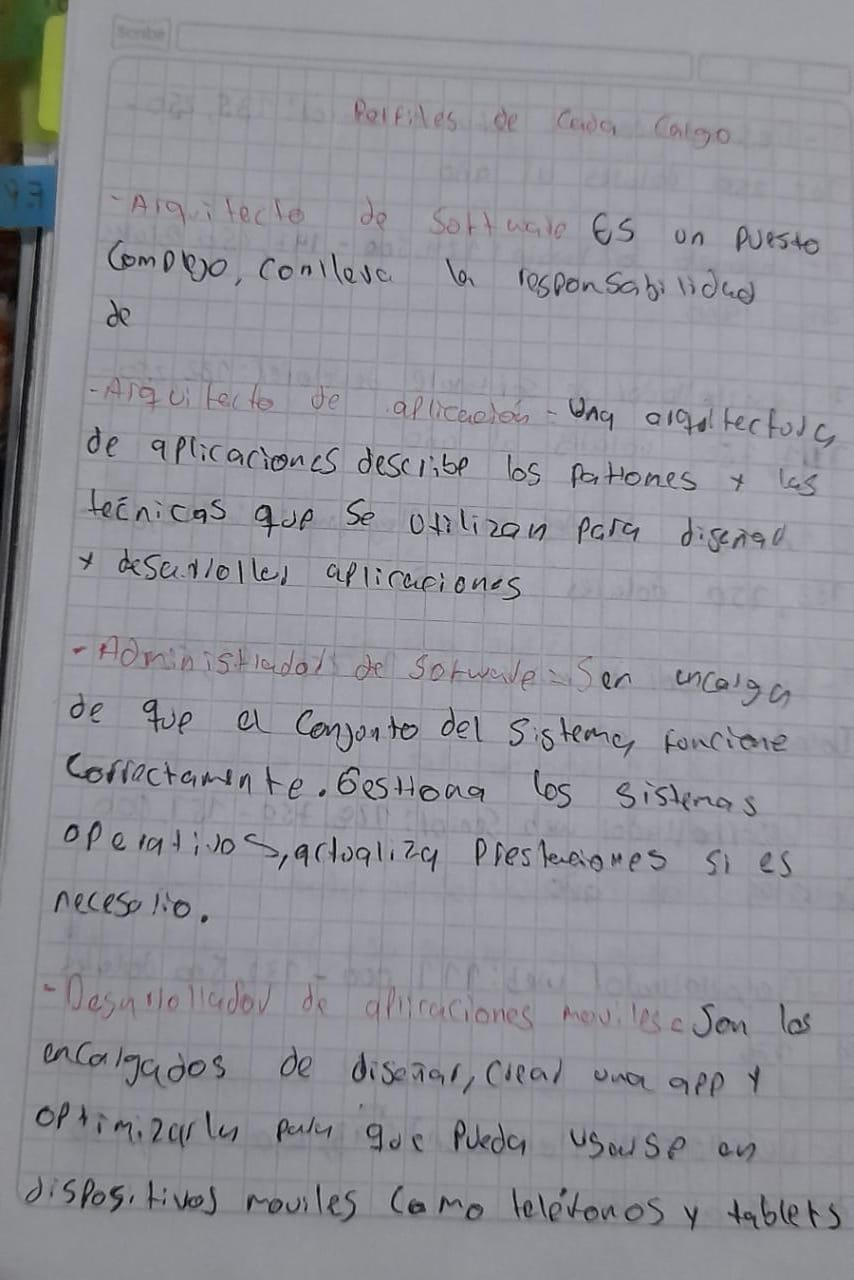 Scribe
Perfiles de Cada Cargo
-Arquitecto de Software ES un puesto
Complejo, conlleva la responsabilidad
de
-Arquitecto de aplicación - Una arquitectura
de aplicaciones describe los patrones y las
tecnicas que se utilizan para diseñad
y desarroller aplicaciones
- Administrador de Sofware = Sen encarga
de que el Conjunto del Sistema, funcione
Correctamente. Gestiona los sistemas
operativos, actualiza Prestaciones si es
necesario.
-Desarrollador de aplicaciones moviles = Son los
encargados de diseñar, crear una app y
optimizarla para que pueda usarse en
dispositivos moviles Como teléfonos y tablets
97